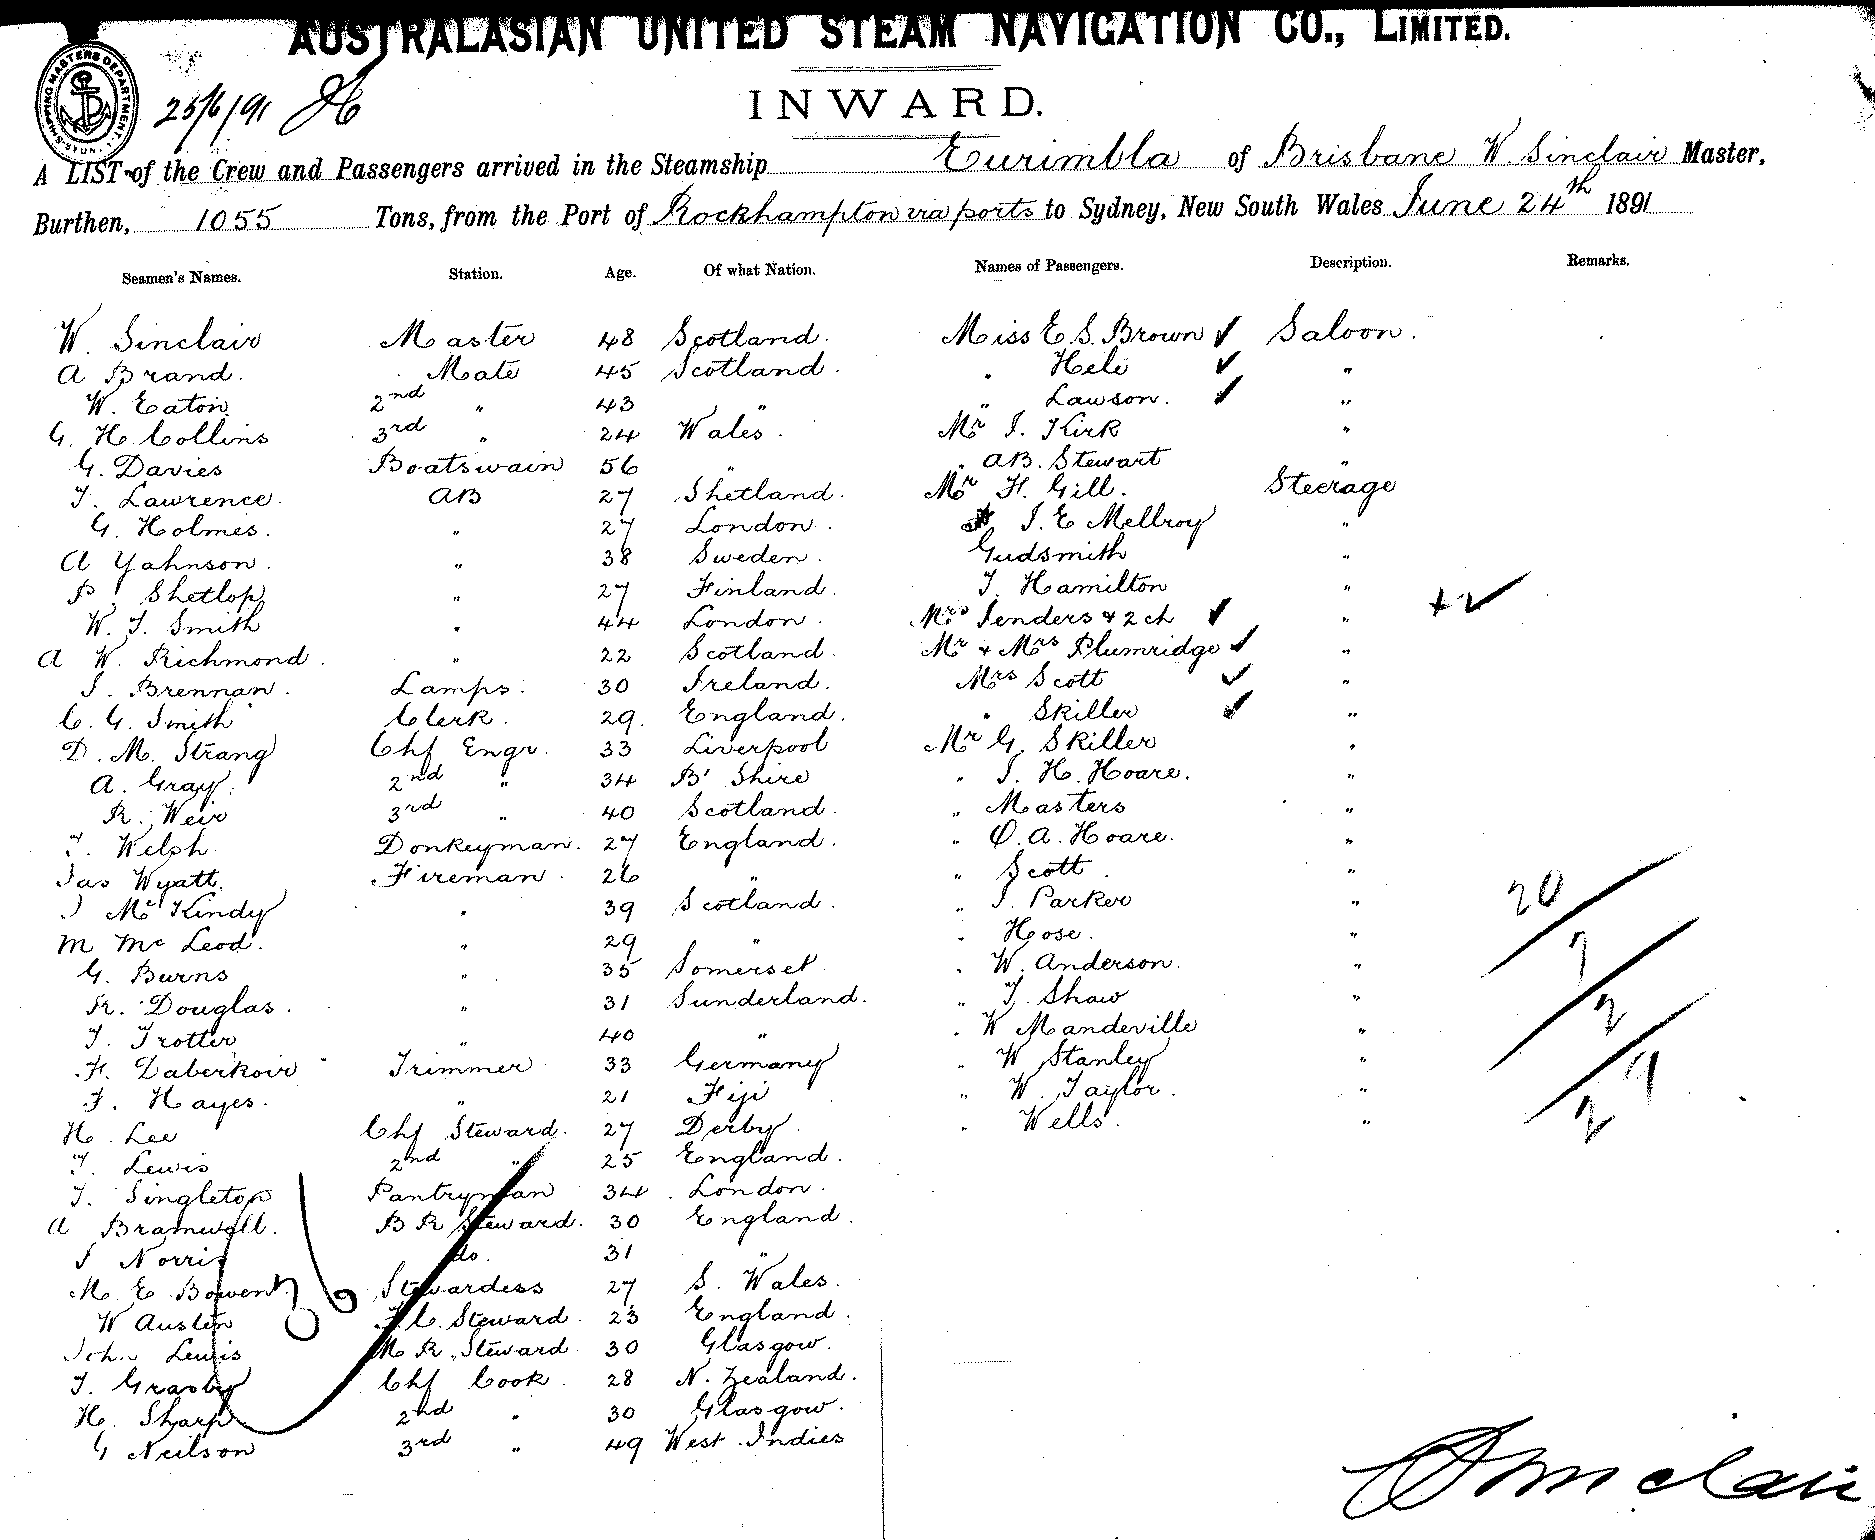 AUSTRALASIAN UNITED STEAM NAVIGATION CO., LIMITED.
SHIPPING MASTERS DEPARTMENT
25/6/91
INWARD.
A LIST of the Crew and Passengers arrived in the Steamship Eurimbla of Brisbane W Sinclair Master,
Burthen, 1055 Tons, from the Port of Rockhampton via ports to Sydney, New South Wales June 24th 1891
Seamen's Names. Station. Age. Of what Nation. Names of Passengers. Description. Remarks.
W. Sinclair Master 48 Scotland. Miss E. S. Brown ✓ Saloon.
A Brand. Mate 45 Scotland. " Hele ✓ "
W. Eaton 2nd " 43 " " Lawson. ✓ "
G. H. Collins 3rd " 24 Wales. Mr J. Kirk "
G. Davies Boatswain 56 " " AB. Stewart "
T. Lawrence. AB 27 Shetland. Mr H. Gill. Steerage
G. Holmes. " 27 London. J. E Mellroy "
A Yahnson. " 38 Sweden. Gudsmith "
P. Shetlop " 27 Finland. T. Hamilton "
W. J. Smith " 44 London. Mrs Senders & 2 ch ✓ " + ✓
A W. Richmond. " 22 Scotland. Mr & Mrs Plumridge ✓ "
J. Brennan. Lamps. 30 Ireland. Mrs Scott ✓ "
C. G. Smith Clerk. 29. England. " Skiller ✓ "
D. M. Strang Chf Engr. 33 Liverpool Mr G. Skiller "
A. Gray. 2nd " 34 B' Shire " J. H. Hoare. "
R. Weir 3rd " 40 Scotland. " Masters "
T. Welsh Donkeyman. 27 England. " O. A. Hoare. "
Jas Wyatt. Fireman. 26 " " Scott. "
J McKindy " 39 Scotland. " J. Parker " 20
M McLeod. " 29 " " Hose. " 7
G. Burns " 35 Somerset " W. Anderson. "
R. Douglas. " 31 Sunderland. " T. Shaw " 2
T. Trotter " 40 " " W Mandeville "
H. Daberkoir Trimmer 33 Germany " W Stanley " 9
F. Hayes. " 21 Fiji " W. Taylor. " 2
H. Lee Chf Steward. 27 Derby. " Wells. "
T. Lewis 2nd " 25 England.
T. Singleton Pantryman 34. London.
A Bramwell. B R Steward. 30 England.
J Norris do. 31 "
M. E Bowen Stewardess 27 S. Wales.
W Austin F. C. Steward. 23 England.
John Lewis M R. Steward. 30 Glasgow.
T. Grasby Chf Cook. 28 N. Zealand.
H. Sharp 2nd " 30 Glasgow.
G Neilson 3rd " 49 West Indies
36
W Sinclair